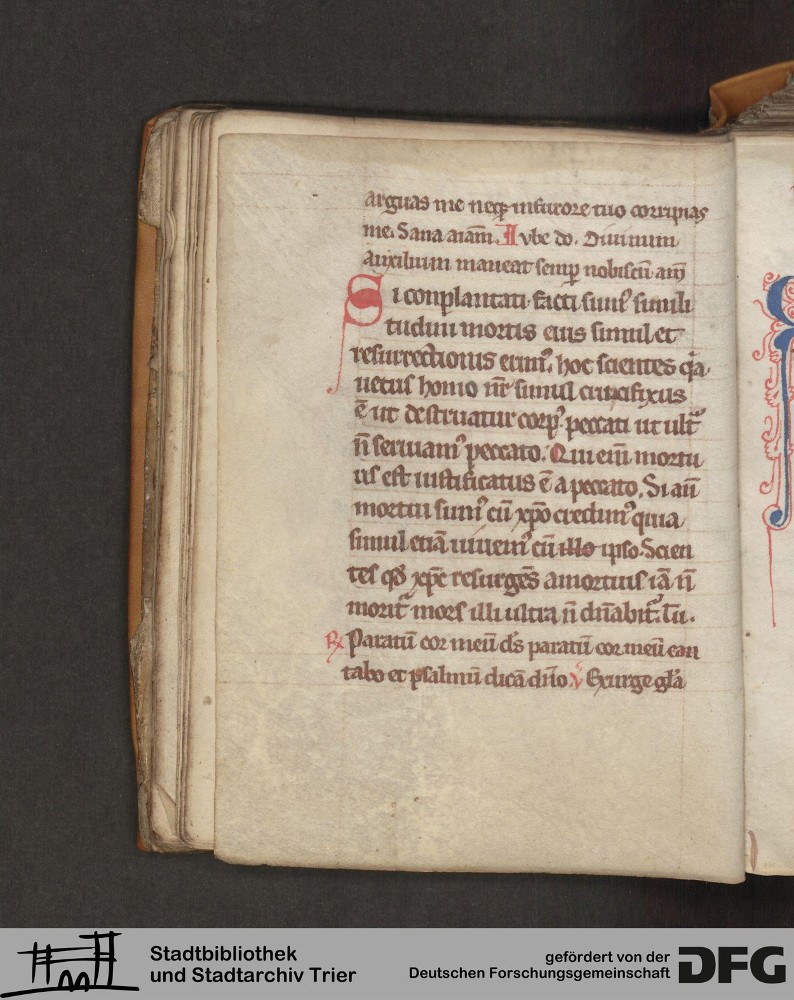 arguas me neqꝫ in furore tuo corripias
me. Sana aiam̄. Iube do. Diuinum
auxilium maneat semp̲ nobiscū am̄
Si conplantati facti sum᷒ simili
tudini mortis eius simul et
resurrectionis erim᷒. hoc scientes q̄a
uetus homo nr̄ simul crucifixus
ē ut destruatur corp᷒ peccati ut ult͛
n̄ seruiam᷒ peccato. Qui eni̅ mortu
us est iustificatus ē a peccato. Si au̅
mortui sum᷒ cū xp̅o credim᷒ quia
simul etiā uiuem᷒ cū illo ipso Scien
tes qd̅ xp̅c resurgēs a mortuis iā n̄
morit͛ mors illi ultra n̄ dn̅abit͛. Lu̅.
℞ Paratū cor meū ds̅ paratū cor meū can
tabo et psalmū dicā dn̅o ℣ Exurge gl̅a
Stadtbibliothek
und Stadtarchiv Trier
gefördert von der
Deutschen Forschungsgemeinschaft
DFG